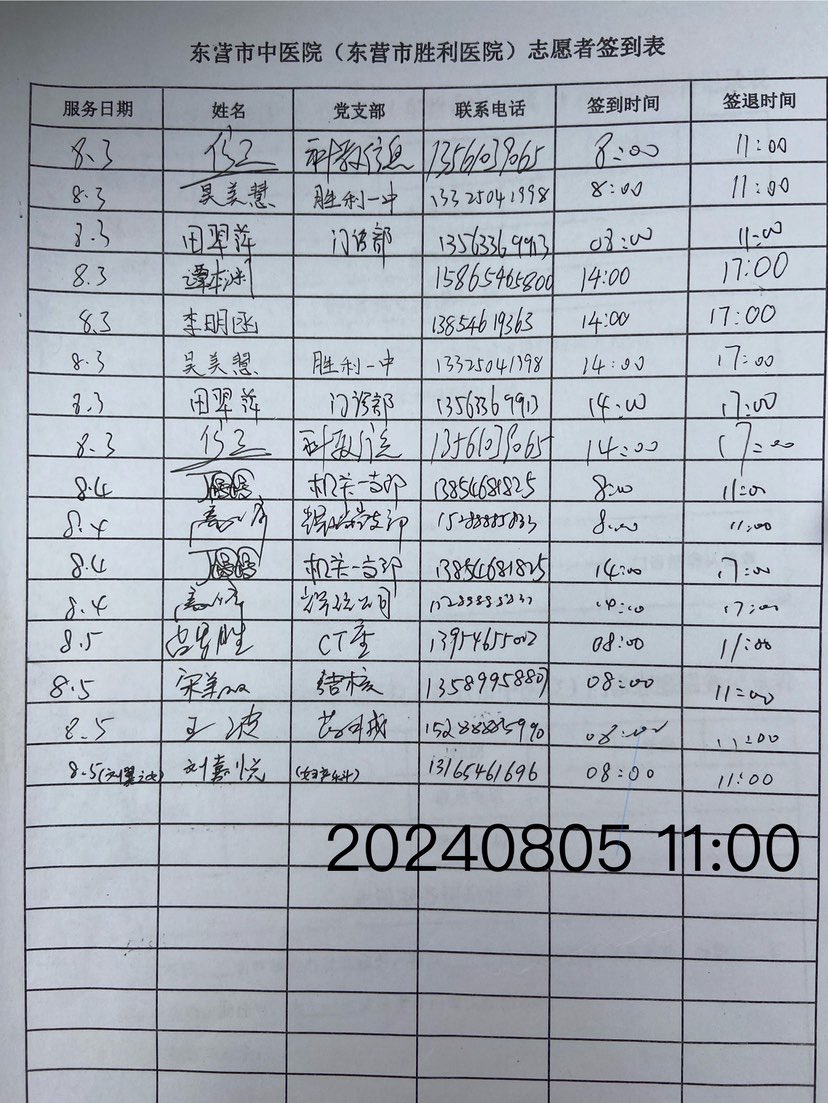 东营市中医院（东营市胜利医院）志愿者签到表
服务日期 姓名 党支部 联系电话 签到时间 签退时间
8.3 科教信息 13561039065 8:00 11:00
8.3 吴美慧 胜利一中 13325041398 8:00 11:00
8.3 田翠萍 门诊部 13563369913 08:00 11:00
8.3 谭本渊 15865465800 14:00 17:00
8.3 李明函 13854619363 14:00 17:00
8.3 吴美慧 胜利一中 13325041398 14:00 17:00
8.3 田翠萍 门诊部 13563369913 14:00 17:00
8.3 科教信息 13561039065 14:00 17:00
8.4 机关一支部 13854681825 8:00 11:00
8.4 15288885833 8:00 11:00
8.4 机关一支部 13854681825 14:00 17:00
8.4 14:00 17:00
8.5 CT室 13954655002 08:00 11:00
8.5 结核 13589958807 08:00 11:00
8.5 王波 15288885990 08:00 11:00
8.5 刘嘉悦 (妇产科) 13165461696 08:00 11:00
20240805 11:00